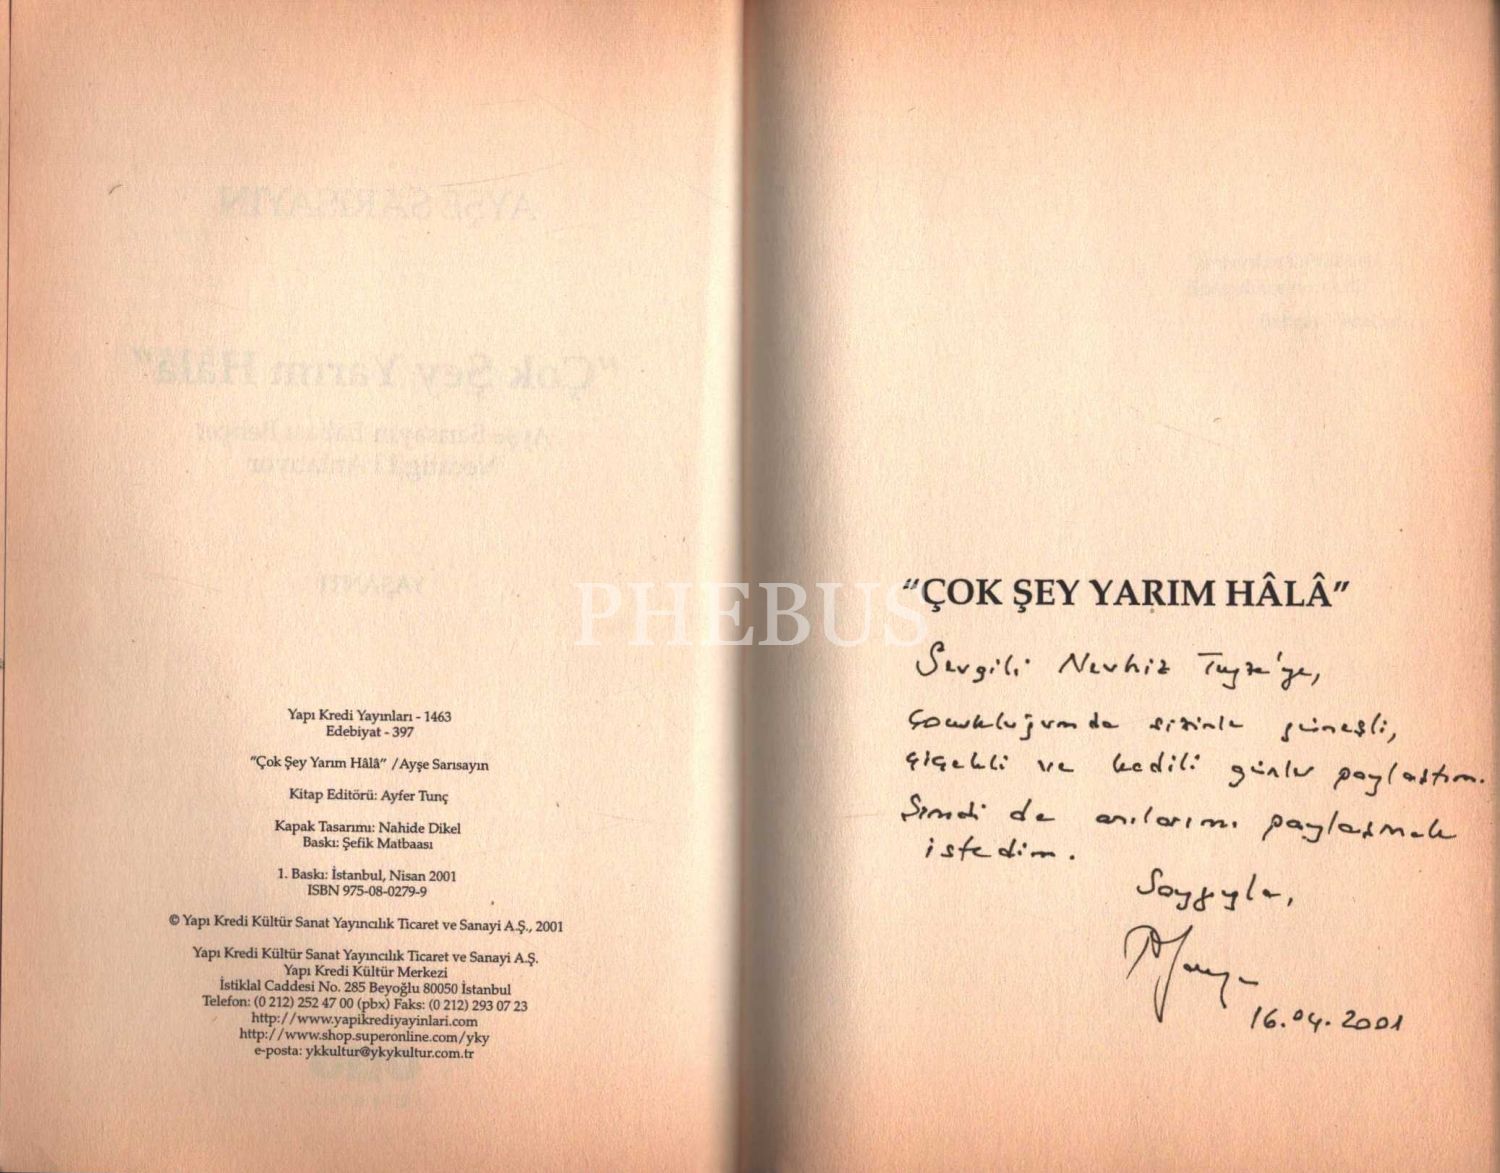 Yapı Kredi Yayınları - 1463
Edebiyat - 397
"Çok Şey Yarım Hâlâ" /Ayşe Sarısayın
Kitap Editörü: Ayfer Tunç
Kapak Tasarımı: Nahide Dikel
Baskı: Şefik Matbaası
1. Baskı: İstanbul, Nisan 2001
ISBN 975-08-0279-9
© Yapı Kredi Kültür Sanat Yayıncılık Ticaret ve Sanayi A.Ş., 2001
Yapı Kredi Kültür Sanat Yayıncılık Ticaret ve Sanayi A.Ş.
Yapı Kredi Kültür Merkezi
İstiklal Caddesi No. 285 Beyoğlu 80050 İstanbul
Telefon: (0 212) 252 47 00 (pbx) Faks: (0 212) 293 07 23
http://www.yapikrediyayinlari.com
http://www.shop.superonline.com/yky
e-posta: ykkultur@ykykultur.com.tr
PHEBUS
"ÇOK ŞEY YARIM HÂLÂ"
Sevgili Nevhiz
Çocukluğumda sizinle güneşli,
çiçekli ve kedili günler paylaştım.
Şimdi de anılarımı paylaşmak
istedim.
Saygıyla,
16.04.2001